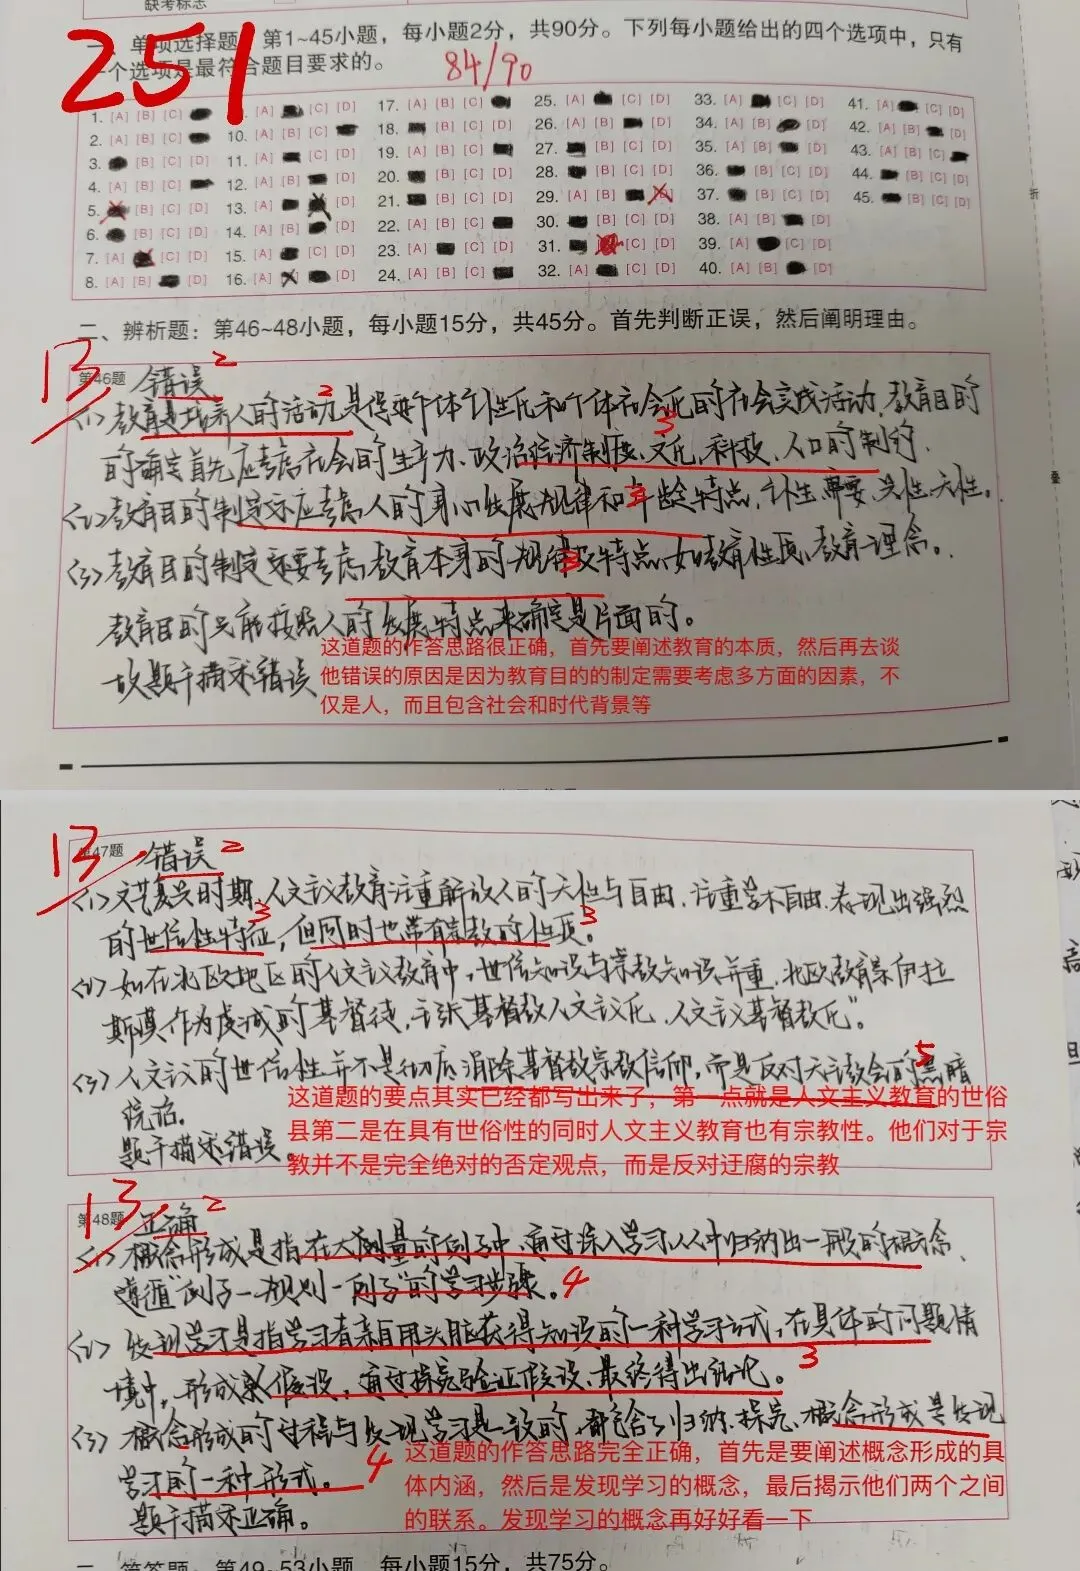 缺考标志
251
一、单项选择题：第1~45小题，每小题2分，共90分。下列每小题给出的四个选项中，只有
一个选项是最符合题目要求的。
84/90
1. [A] [B] [C]
2. [A] [B] [C]
3. [B] [C] [D]
4. [A] [B] [C]
5. [B] [C] [D]
6. [B] [C] [D]
7. [A] [C] [D]
8. [A] [B] [D]
[A] [C] [D]
10. [A] [B] [C]
11. [A] [C] [D]
12. [A] [B] [D]
13. [A] [D]
14. [A] [B] [D]
15. [A] [C] [D]
16. [A] [D]
17. [A] [B] [C]
18. [B] [C] [D]
19. [A] [B] [C]
20. [B] [C] [D]
21. [B] [C] [D]
22. [A] [B] [C]
23. [A] [C] [D]
24. [A] [B] [C]
25. [A] [C] [D]
26. [A] [B] [D]
27. [B] [C] [D]
28. [B] [C] [D]
29. [A] [B]
30. [B] [C] [D]
31. [C] [D]
32. [A] [C] [D]
33. [A] [C] [D]
34. [A] [B] [D]
35. [A] [B] [D]
36. [B] [C] [D]
37. [B] [C] [D]
38. [A] [B] [D]
39. [A] [C] [D]
40. [A] [B] [D]
41. [A] [C] [D]
42. [A] [B] [D]
43. [A] [B] [C]
44. [B] [C] [D]
45. [B] [C] [D]
折
二、辨析题：第46~48小题，每小题15分，共45分。首先判断正误，然后阐明理由。
13 第46题 错误 2
(1) 教育是培养人的活动 2 是促进个体个性化和个体社会化的社会实践活动，教育目的
的确定首先应考虑社会的生产力、政治经济制度、文化、科技、人口的制约． 3
(2) 教育目的制定还应考虑人的身心发展规律和年龄特点，个性需要，共性、天性。 3
(3) 教育目的制定还要考虑教育本身的规律及特点，如教育性质、教育理念。 3
教育目的只能按照人的发展特点来确定是片面的。
故题干描述错误
这道题的作答思路很正确，首先要阐述教育的本质，然后再去谈
他错误的原因是因为教育目的的制定需要考虑多方面的因素，不
仅是人，而且包含社会和时代背景等
13 第47题 错误 2
(1) 文艺复兴时期，人文主义教育注重解放人的天性与自由，注重学术自由，表现出强烈
的世俗性特征，但同时也带有宗教的性质。 3 3
(2) 如在北欧地区的人文主义教育中，世俗知识与宗教知识并重，北欧教育家伊拉
斯谟作为虔诚的基督徒，主张"基督教人文主义化，人文主义基督教化"。
(3) 人文主义的世俗性并不是彻底消除基督教宗教信仰，而是反对天主教会的黑暗 5
统治。
题干描述错误。
这道题的要点其实已经都写出来了，第一点就是人文主义教育的世俗
县第二是在具有世俗性的同时人文主义教育也有宗教性。他们对于宗
教并不是完全绝对的否定观点，而是反对迂腐的宗教
13 第48题 正确 2
(1) 概念形成是指在大测量的例子中，通过深入学习从中归纳出一般的概念，
遵循"例子—规则—例子"的学习步骤。 4
(2) 发现学习是指学习者亲自用头脑获得知识的一种学习方式，在具体的问题情
境中，形成假设，通过探究验证假设，最终得出结论。 3
(3) 概念形成的过程与发现学习是一致的，都包含了归纳、探究、概念形成是发现
学习的一种形式。 4
题干描述正确。
这道题的作答思路完全正确，首先是要阐述概念形成的具
体内涵，然后是发现学习的概念，最后揭示他们两个之间
的联系。发现学习的概念再好好看一下
三、简答题：第49~53小题，每小题15分，共75分。